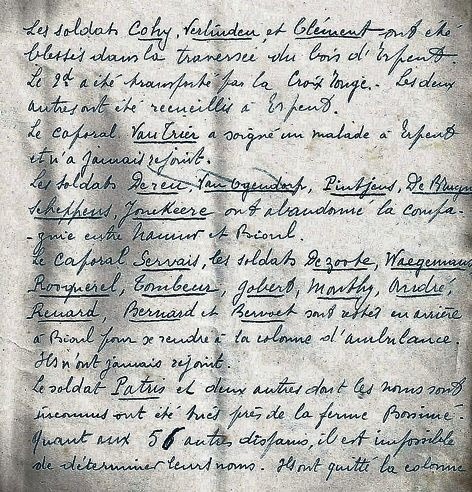 Les soldats Cohy, Verlinden, et Clément ont été
blessés dans la traversée du bois d'Erpent.
Le 2d a été transporté par la Croix rouge. - Les deux
autres ont été recueillis à Erpent.
Le caporal Van Trier a soigné un malade à Erpent
et n'a jamais rejoint.
Les soldats Dereu, Van Ogendorp, Pintjens, De
Scheppens, Jonckeere ont abandonné la compa-
-gnie entre Namur et Bioul.
Le caporal Servais, les soldats Dezoote, Waegemans
Rosquerel, Tombeur, Jobert, Monthy, André,
Renard, Bernard et Benoet sont restés en arrière
à Bioul pour se rendre à la colonne d'ambulance.
Ils n'ont jamais rejoint.
Le soldat Patris et deux autres dont les noms sont
inconnus ont été tués près de la ferme Bossime.
Quant aux 56 autres disparus, il est impossible
de déterminer leurs noms. Ils ont quitté la colonne